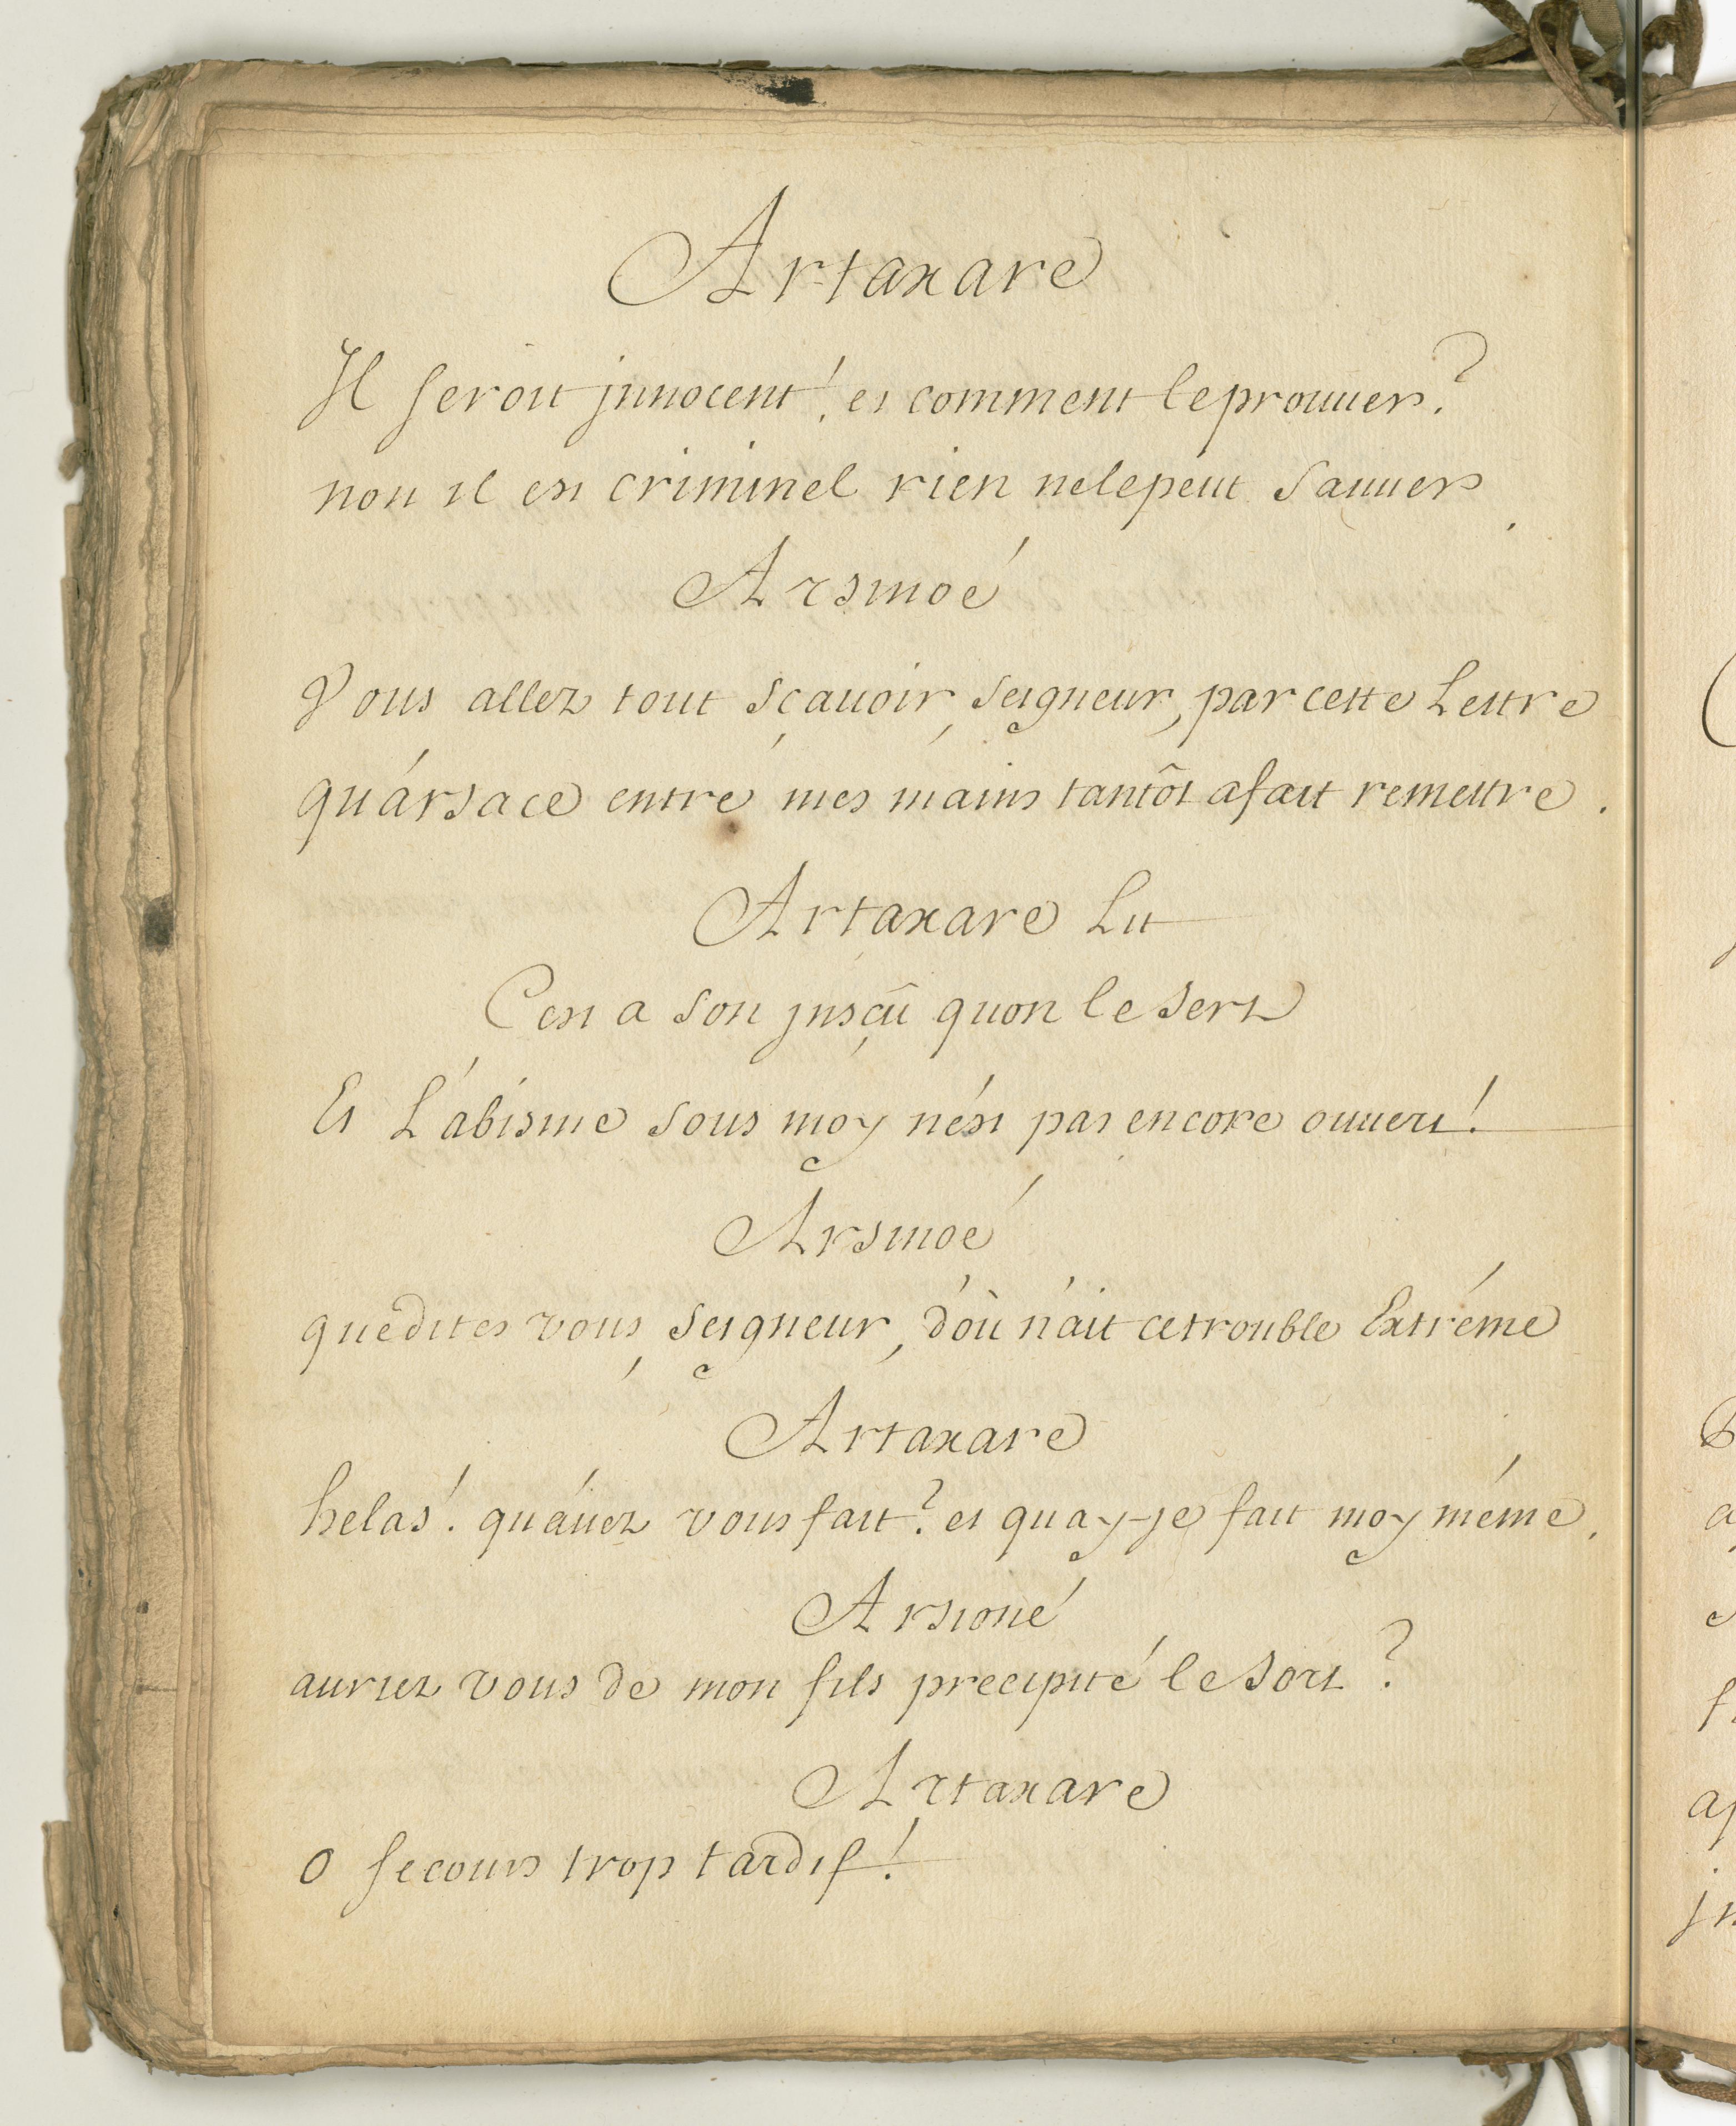 Artaxare
Il seroit jnnocent! et comment le prouuer?
non il est criminel rien ne le peut sauuer.
Arsinoé
Vous allez tout sçauoir, seigneur, par cette Lettre
qu'arsace entre mes mains tantôt a fait remettre.
Artaxare Lit
C'est a son jnsçû quon le sert
Et L'abisme sous moy n'est pas encore ouuert!
Arsinoé
que dites vous, seigneur, d'où n'ait ce trouble Extréme
Artaxare
helas! qu'auez vous fait? et qu'ay-je fait moy méme.
Arsioné
auriez vous de mon fils precipité le sort?
Artaxare
o secours trop tardif!